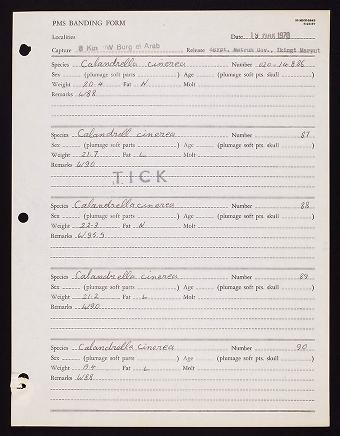 PMS BANDING FORM
Localities Date 13 MAR 1970
Capture 8 Km W Burg el Arab Release Egypt, Matruh Gov., Ikingi Maryut
Species Calandrella cinerea Number 020-14886
Sex (plumage soft parts) Age (plumage soft pts. skull)
Weight 20.4 Fat N Molt
Remarks W88
Species Calandrell cinerea Number 87
Sex (plumage soft parts) Age (plumage soft pts. skull)
Weight 21.7 Fat L Molt
Remarks W90
TICK
Species Calandrella cinerea Number 88
Sex (plumage soft parts) Age (plumage soft pts. skull)
Weight 22.3 Fat N Molt
Remarks W95.5
Species Calandrella cinerea Number 89
Sex (plumage soft parts) Age (plumage soft pts. skull)
Weight 21.2 Fat L Molt
Remarks W90
Species Calandrella cinerea Number 90
Sex (plumage soft parts) Age (plumage soft pts. skull)
Weight Fat L Molt
Remarks W88